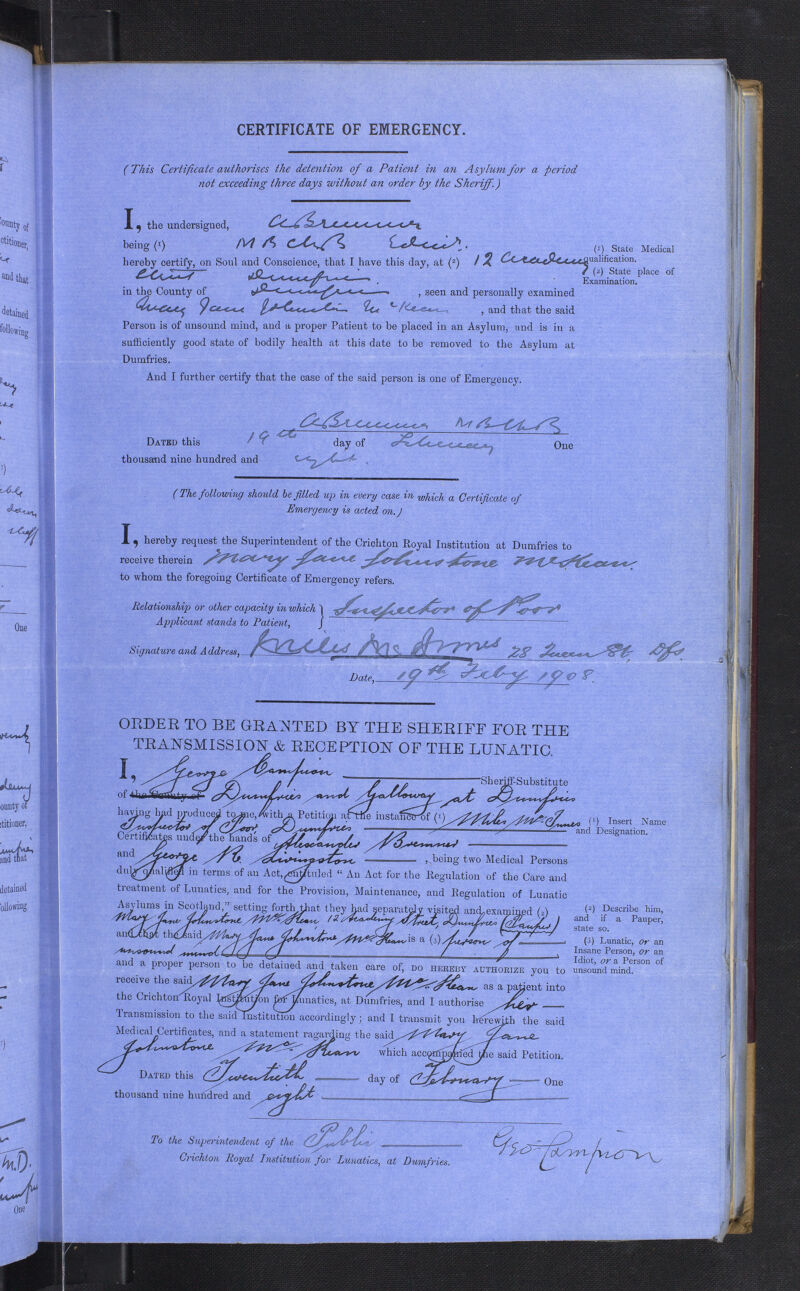 CERTIFICATE OF EMERGENCY.
(This Certificate authorises the detention of a Patient in an Asylum for a period
not exceeding three days without an order by the Sheriff.)
I, the undersigned, ABremner
being (1) MB ChB Edinr.
hereby certify, on Soul and Conscience, that I have this day, at (2) 12 Academy
Street Dumfries
in the County of Dumfries, seen and personally examined
Mary Jane Johnston McKean, and that the said
Person is of unsound mind, and a proper Patient to be placed in an Asylum, and is in a
sufficiently good state of bodily health at this date to be removed to the Asylum at
Dumfries.
And I further certify that the case of the said person is one of Emergency.
(1) State Medical
Qualification.
(2) State place of
Examination.
ABremner MB ChB
DATED this 19th day of February One
thousand nine hundred and eight.
(The following should be filled up in every case in which a Certificate of
Emergency is acted on.)
I, hereby request the Superintendent of the Crichton Royal Institution at Dumfries to
receive therein Mary Jane Johnstone McKean.
to whom the foregoing Certificate of Emergency refers.
Relationship or other capacity in which } Inspector of Poor
Applicant stands to Patient,
Signature and Address, Miles McInnes 28 Queen St. Dfs.
Date, 19th Feby 1908.
ORDER TO BE GRANTED BY THE SHERIFF FOR THE
TRANSMISSION & RECEPTION OF THE LUNATIC.
I, George Campion Sheriff-Substitute
of the County of Dumfries and Galloway at Dumfries
having had produced to me, with a Petition at the instance of (1) Miles McInnes
Inspector of Poor, Dumfries
Certificates under the hands of Alexander Bremner
and George R. Livingston, being two Medical Persons
duly qualified in terms of an Act, entituled "An Act for the Regulation of the Care and
treatment of Lunatics, and for the Provision, Maintenance, and Regulation of Lunatic
Asylums in Scotland," setting forth that they had separately visited and examined (2)
Mary Jane Johnstone McKean 12 Academy Street, Dumfries (Pauper)
and that the said Mary Jane Johnstone McKean is a (3) person of
unsound mind
and a proper person to be detained and taken care of, DO HEREBY AUTHORIZE you to
receive the said Mary Jane Johnstone McKean as a patient into
the Crichton Royal Institution for Lunatics, at Dumfries, and I authorise her
Transmission to the said Institution accordingly; and I transmit you herewith the said
Medical Certificates, and a statement ragarding the said Mary Jane
Johnstone McKean which accompanied the said Petition.
(1) Insert Name
and Designation.
(2) Describe him,
and if a Pauper,
state so.
(3) Lunatic, or an
Insane Person, or an
Idiot, or a Person of
unsound mind.
DATED this Twentieth day of February One
thousand nine hundred and eight
To the Superintendent of the Public
Crichton Royal Institution for Lunatics, at Dumfries.
Geo Campion